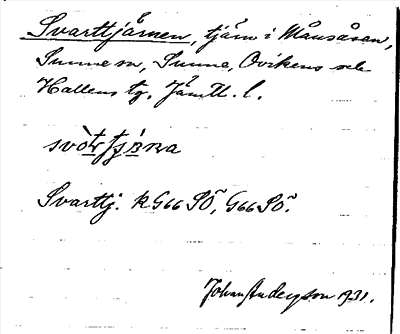 Svarttjärnen, tjärn i Månsåsen,
Sunne sn, Sunne, Ovikens och
Hallens tg. Jämtl. l.
Svarttj. R G66 SÖ, G66 SÖ.
Johan Anderson 1931.